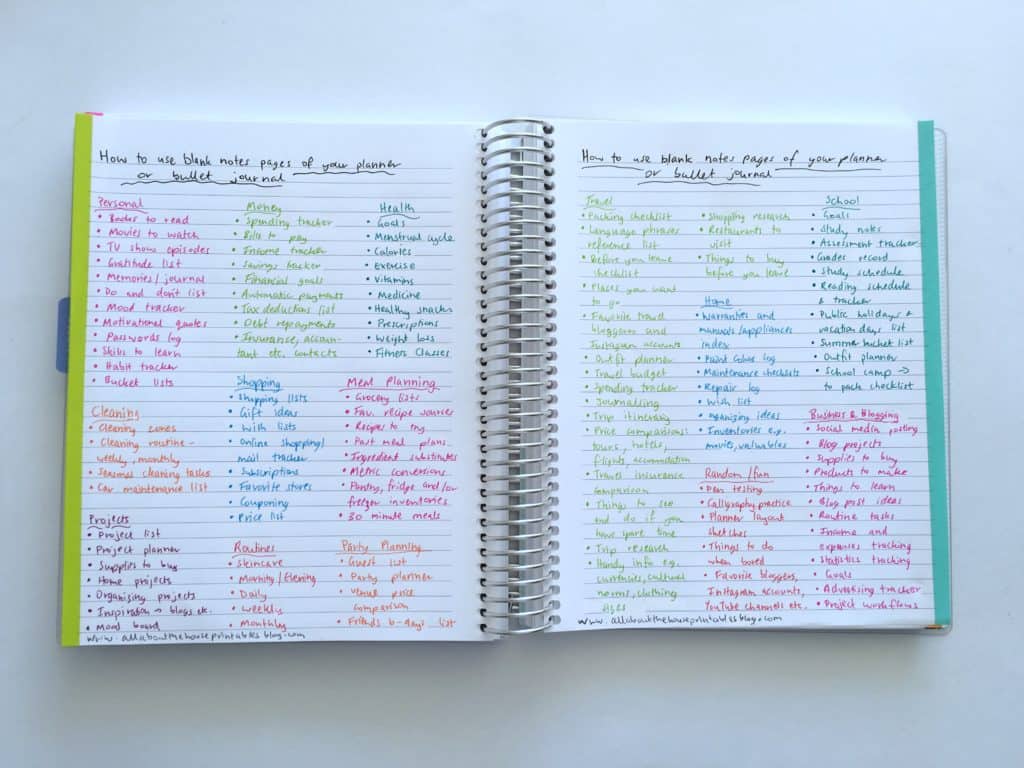 How to use blank notes pages of your planner
or bullet journal
Personal
• Books to read
• Movies to watch
• TV shows episodes
• Gratitude list
• Memories/journal
• Do and don't list
• Mood tracker
• Motivational quotes
• Passwords log
• Skills to learn
• Habit tracker
• Bucket lists
Money
• Spending tracker
• Bills to pay
• Income tracker
• Savings tracker
• Financial goals
• Automatic payments
• Tax deductions list
• Debt repayments
• Insurance, accoun-
tant etc. contacts
Health
• Goals
• Menstrual cycle
• Calories
• Exercise
• Vitamins
• Medicine
• Healthy snacks
• Prescriptions
• Weight loss
• Fitness Classes
Cleaning
• Cleaning zones
• Cleaning routine -
weekly, monthly
• Seasonal cleaning tasks
• Car maintenance list
Shopping
• Shopping lists
• Gift ideas
• Wish lists
• Online shopping/
mail tracker
• Subscriptions
• Favorite stores
• Couponing
• Price list
Meal Planning
• Grocery lists
• Fav. recipe sources
• Recipes to try
• Past meal plans
• Ingredient substitutes
• Metric conversions
• Pantry, fridge and/or
freezer inventories
• 30 minute meals
Projects
• Project list
• Project planner
• Supplies to buy
• Home projects
• Organizing projects
• Inspiration → blogs etc.
• Mood board
Routines
• Skincare
• Morning/Evening
• Daily
• Weekly
• Monthly
Party Planning
• Guest list
• Party planner
• Venue price
comparison
• Friends b-days list
www.allaboutthehouseprintablesblog.com
How to use blank notes pages of your planner
or bullet journal
Travel
• Packing checklist
• Language phrases
reference list
• Before you leave
checklist
• Places you want
to go
• Favorite travel
bloggers and
Instagram accounts
• Outfit planner
• Travel budget
• Spending tracker
• Journalling
• Trip itinerary
• Price comparisons:
tours, hotels,
flights, accomodation
• Travel insurance
comparison
• Things to see
and do if you
have spare time
• Trip research
• Handy info e.g.
currencies, cultural
norms, clothing
sizes
• Shopping research
• Restaurants to
visit
• Things to buy
before you leave
Home
• Warranties and
manuals/appliances
index
• Paint color log
• Maintenance checklists
• Repair log
• Wish list
• Organizing ideas
• Inventories e.g.
movies, valuables
Random/fun
• Pen testing
• Calligraphy practice
• Planner layout
sketches
• Things to do
when bored
• Favorite bloggers,
Instagram accounts,
YouTube channels etc.
School
• Goals
• Study notes
• Assessment tracker
• Grades record
• Study schedule
• Reading schedule
& tracker
• Public holidays &
vacation days list
• Summer bucket list
• Outfit planner
• School camp →
to pack checklist
Business & Blogging
• Social media posting
• Blog projects
• Supplies to buy
• Products to make
• Things to learn
• Blog post ideas
• Routine tasks
• Income and
expenses tracking
• Statistics tracking
• Goals
• Advertising tracker
• Project workflows
www.allaboutthehouseprintablesblog.com